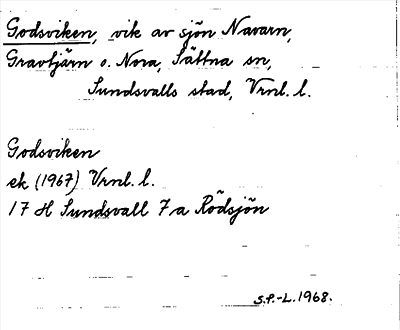 Godsviken, vik av sjön Navarn,
Gravtjärn o. Nora, Sättna sn,
Sundsvalls stad, Vrnl. l.
Godsviken
ek (1967) Vrnl. l.
17 H Sundsvall 7 a Rödsjön
S.P.-L. 1968.